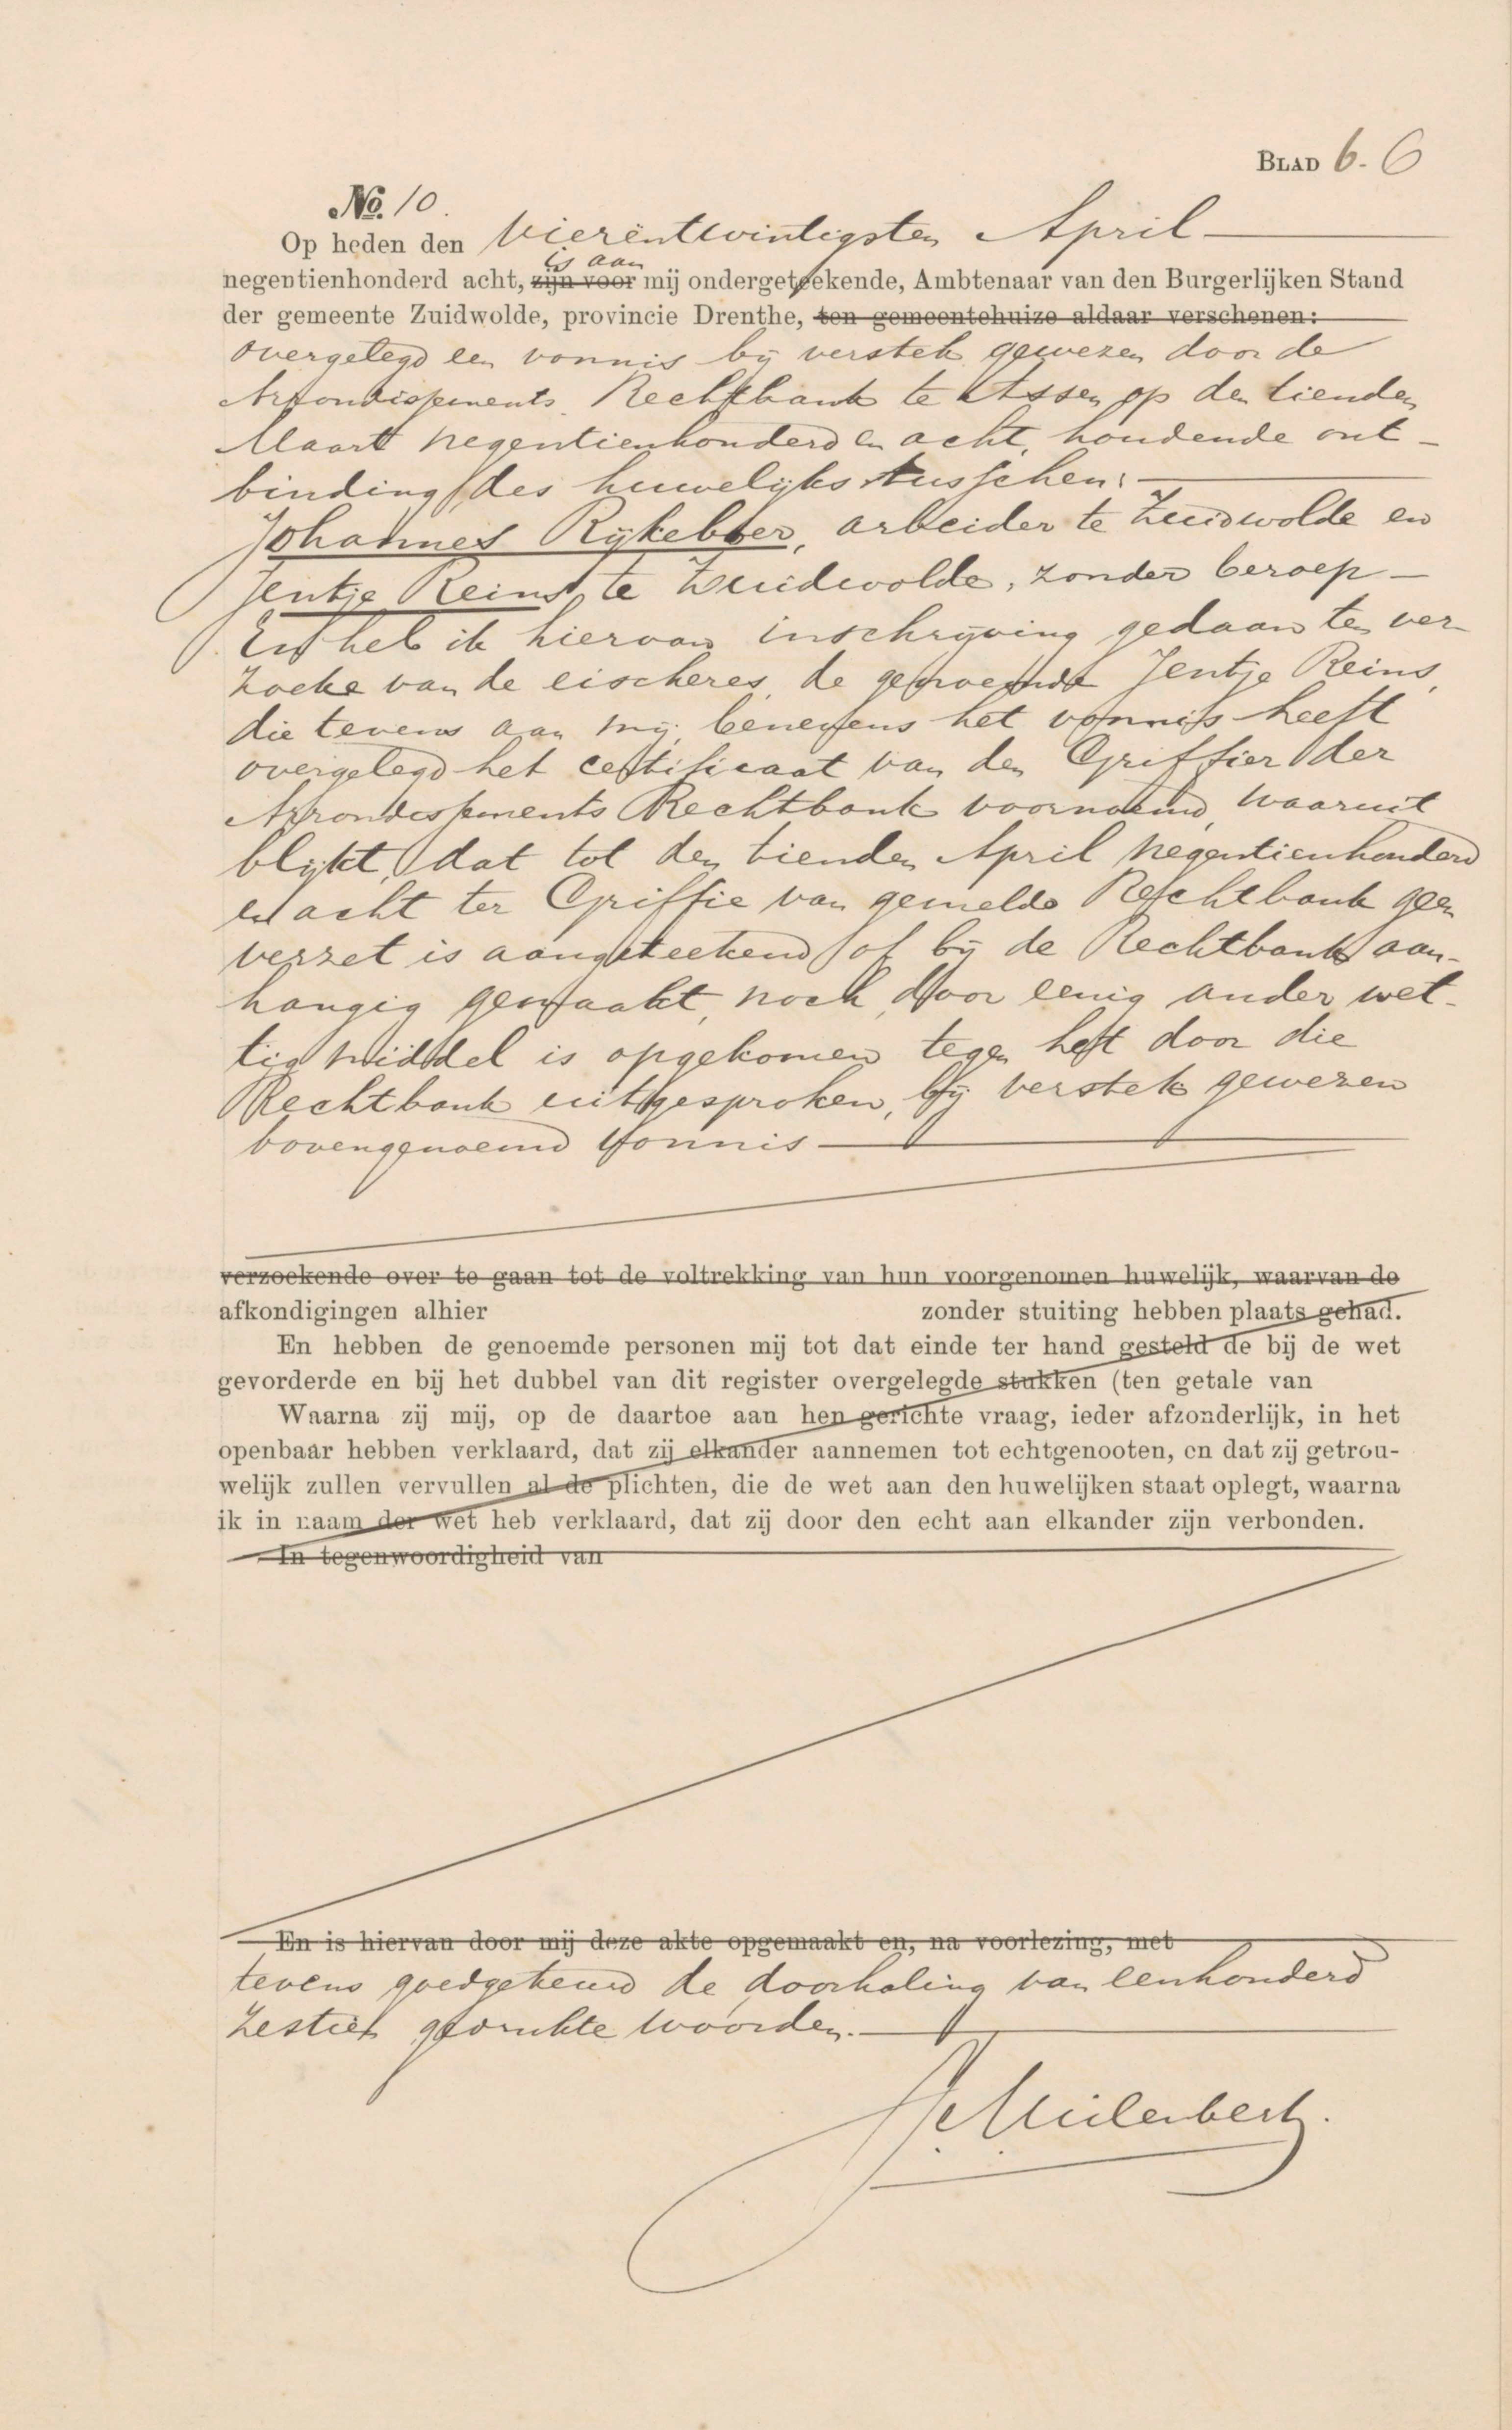 BLAD 6. 6
No. 10.
Op heden den vierentwintigsten April
is aan
negentienhonderd acht, zijn voor mij ondergeteekende, Ambtenaar van den Burgerlijken Stand
der gemeente Zuidwolde, provincie Drenthe, ten gemeentehuize aldaar verschenen:
overgelegd een vonnis bij verstek gewezen door de
Arrondissements Rechtbank te Assen op den tienden
Maart negentienhonderd en acht, houdende ont-
binding des huwelijks tusschen:
Johannes Rijkebber, arbeider te Zuidwolde en
Jentje Reins, te Zuidwolde, zonder beroep
En heb ik hiervan inschrijving gedaan ten ver
zoeke van de eischeres, de genoemde Jentje Reins,
die tevens aan mij, benevens het vonnis heeft
overgelegd het certificaat van den Griffier der
Arrondissements Rechtbank voornoemd, waaruit
blijkt, dat tot den tienden April negentienhonderd
en acht ter Griffie van gemelde Rechtbank geen
verzet is aangeteekend of bij de Rechtbank aan-
hangig gemaakt, noch, door eenig ander wet-
tig middel is opgekomen tegen het door die
Rechtbank uitgesproken, bij verstek gewezen
bovengenoemd vonnis
verzoekende over te gaan tot de voltrekking van hun voorgenomen huwelijk, waarvan de
afkondigingen alhier zonder stuiting hebben plaats gehad.
En hebben de genoemde personen mij tot dat einde ter hand gesteld de bij de wet
gevorderde en bij het dubbel van dit register overgelegde stukken (ten getale van
Waarna zij mij, op de daartoe aan hen gerichte vraag, ieder afzonderlijk, in het
openbaar hebben verklaard, dat zij elkander aannemen tot echtgenooten, en dat zij getrou-
welijk zullen vervullen al de plichten, die de wet aan den huwelijken staat oplegt, waarna
ik in naam der wet heb verklaard, dat zij door den echt aan elkander zijn verbonden.
In tegenwoordigheid van
En is hiervan door mij deze akte opgemaakt en, na voorlezing, met
tevens goedgekeurd de doorhaling van eenhonderd
zestien gedrukte woorden.